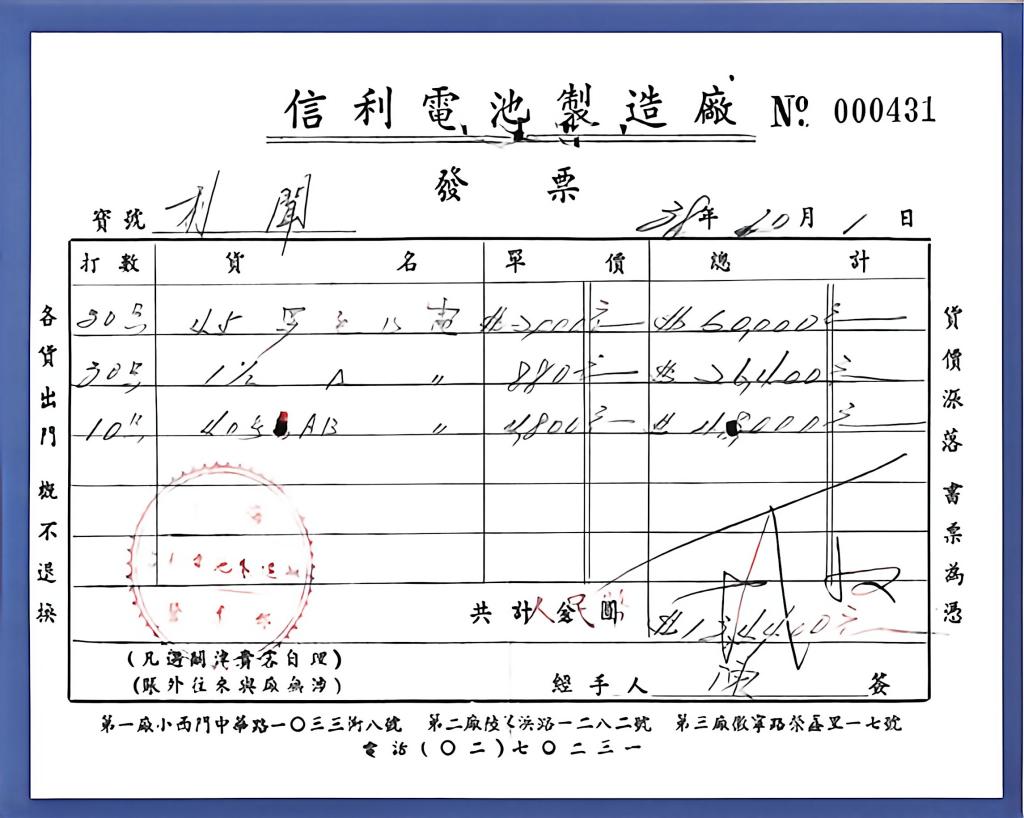 信利電池製造廠 No. 000431
發票
寶號 利聞 38年10月1日
打數 貨名 單價 總計
30 45 電 $2,000元 $60,000元
30 1½ A 〃 880元 $26,400元
10 40 AB 〃 4,800元 $48,000元
共計人民 圓 $134,400元
(凡遇關津貴客自理)
(賬外往來與廠無涉)
經手人 陳 簽
各貨出門概不退換
貨價漲落書票為憑
第一廠小西門中華路一〇三三街八號 第二廠陸家浜路一二八二號 第三廠徽寧路榮盛里一七號
電話(〇二)七〇二三一